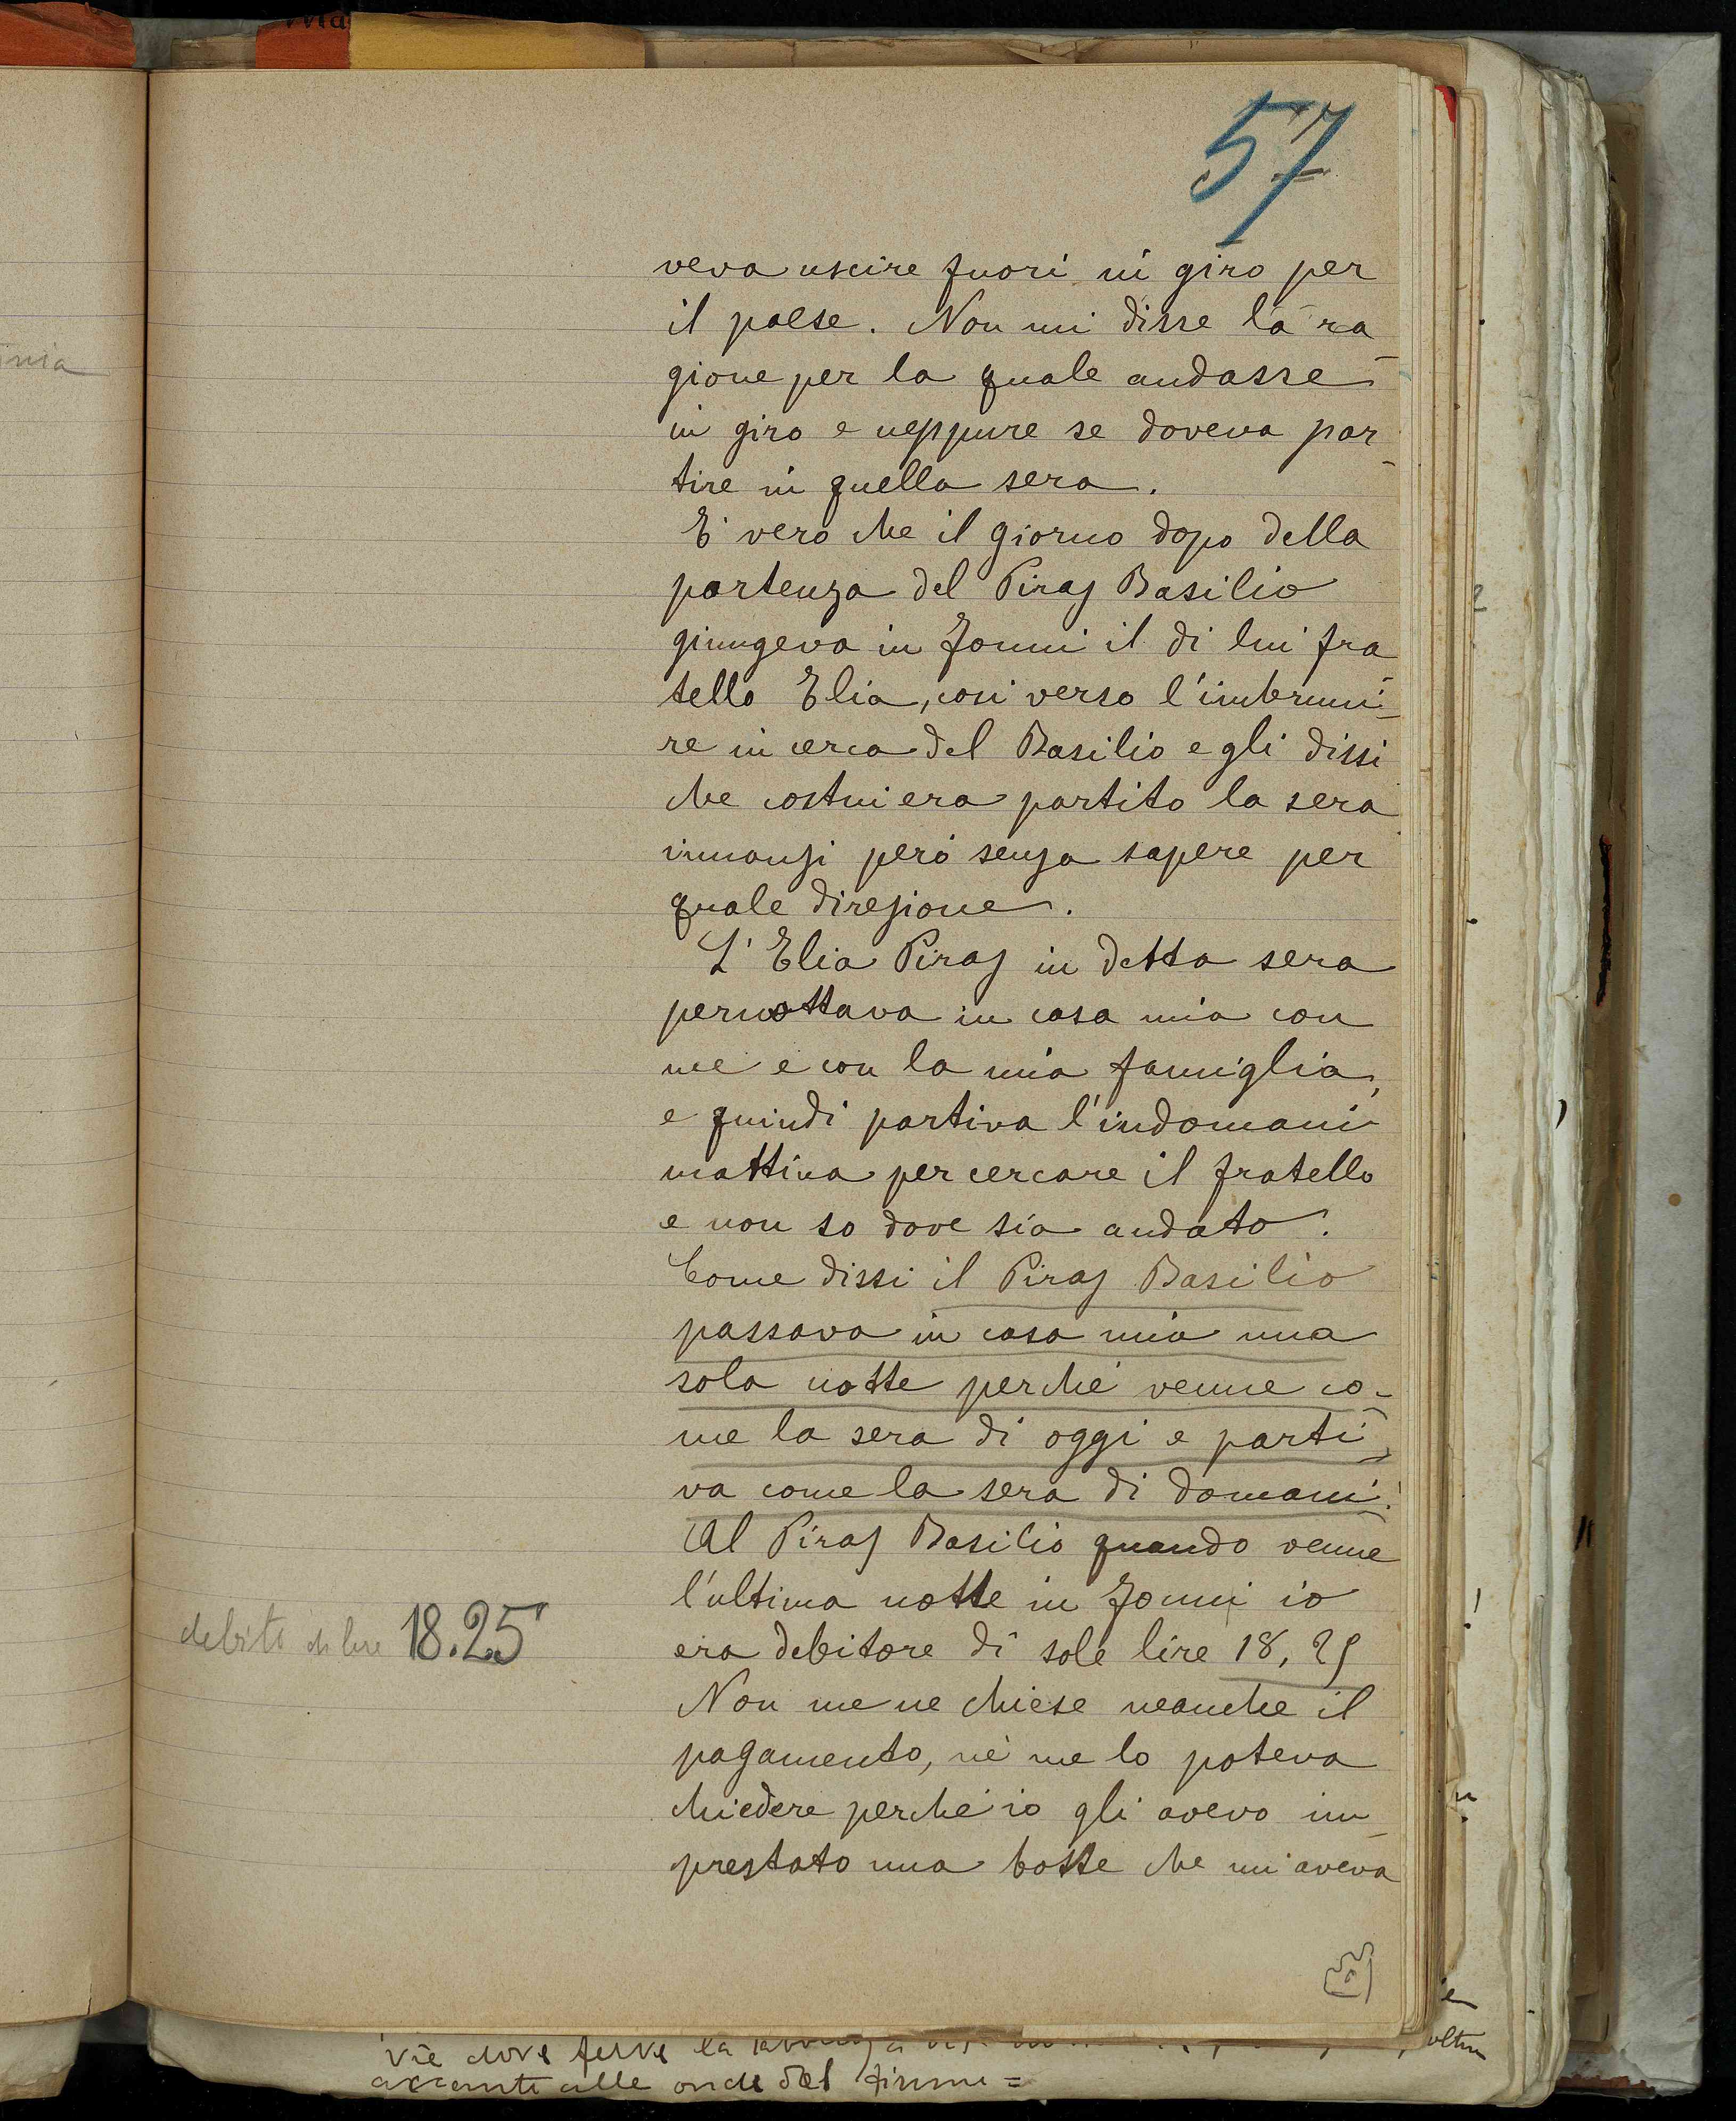 57
veva uscire fuori in giro per
il paese. Non mi disse la ra
gione per la quale andasse
in giro e neppure se doveva par
tire in quella sera.
E' vero che il giorno dopo della
partenza del Piras Basilio
giungeva in Jonni il di lui fra
tello Elia, così verso l'imbruni-
re in cerca del Basilio e gli dissi
che costui era partito la sera
innanzi però senza sapere per
quale direzione.
L'Elia Piras in detta sera
pernottava in casa mia con
me e con la mia famiglia,
e quindi partiva l'indomani
mattina per cercare il fratello
e non so dove sia andato.
Come dissi il Piras Basilio
passava in casa mia una
sola notte perchè venne co-
me la sera di oggi e parti
va come la sera di domani.
Al Piras Basilio quando venne
l'ultima notte in Jonni io
debito di lire 18.25
era debitore di sole lire 18,25
Non me ne chiese neanche il
pagamento, nè me lo poteva
chiedere perchè io gli avevo im
prestato una botte che mi aveva
vie dove ferve la
accanto alle onde del fiume =
oltre